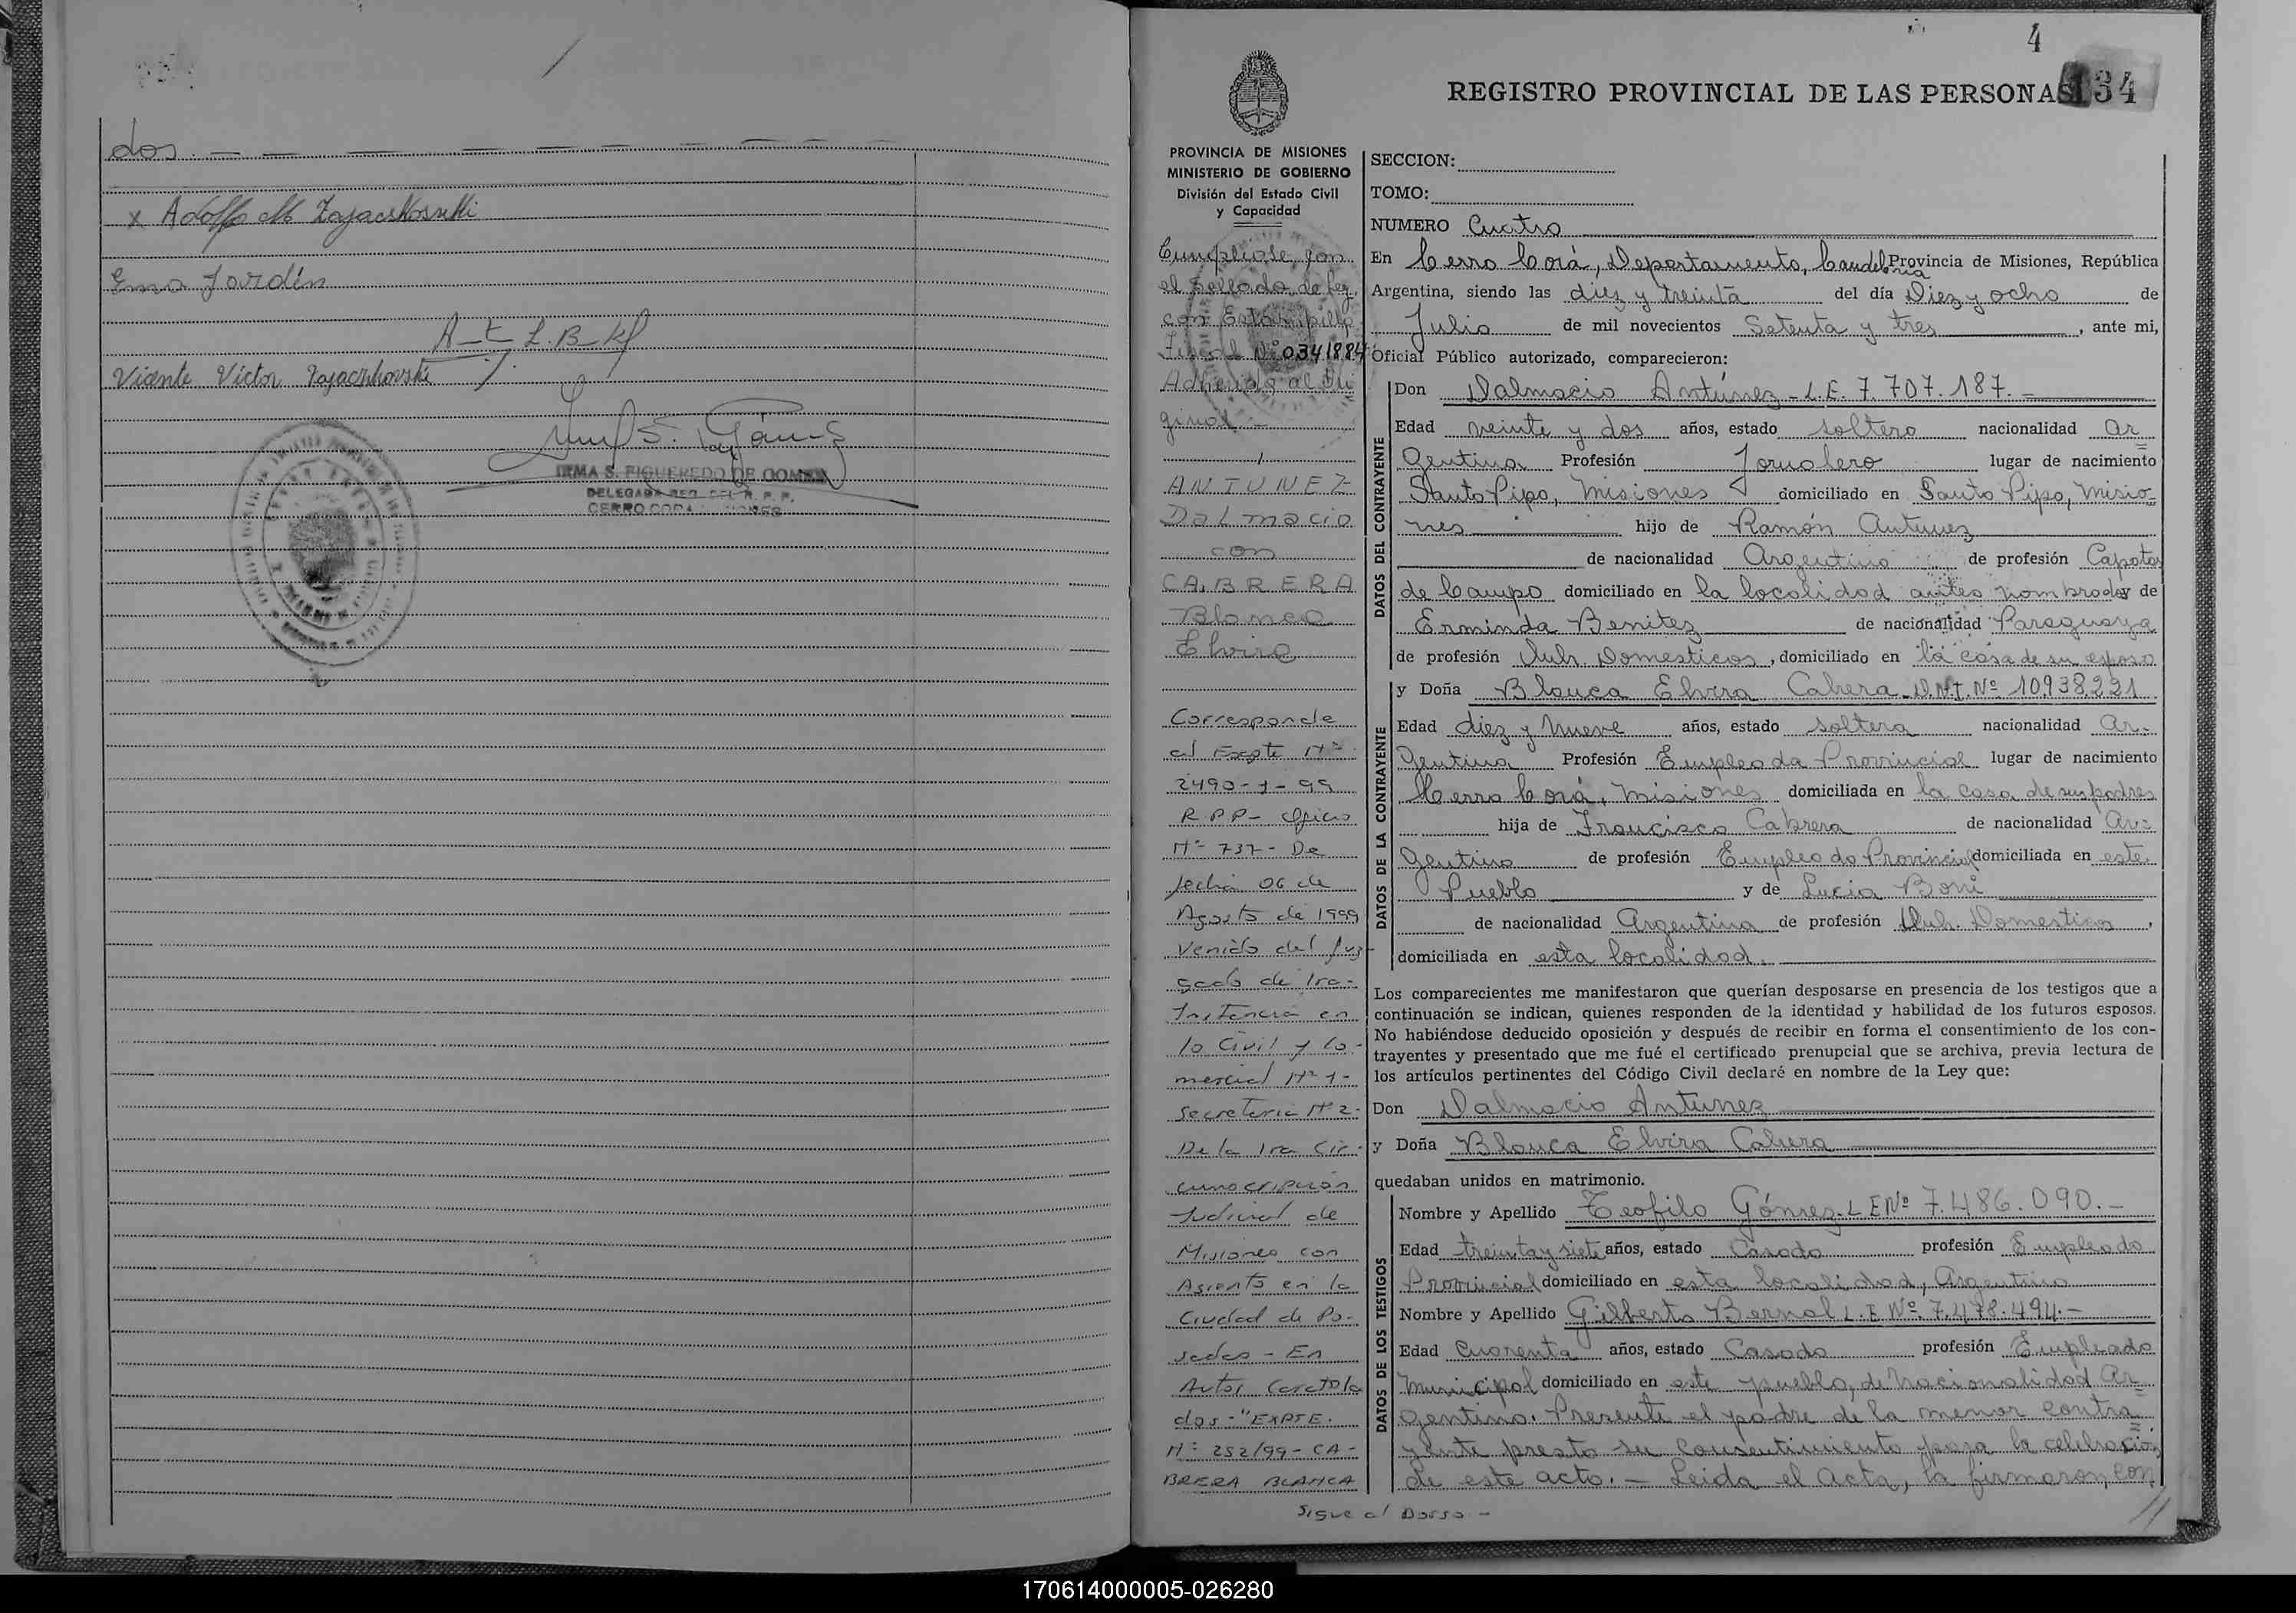 dos.
x Adolfo M Zajaczkoski
Ema Jordén
Vicente Victor Zajaczkovski
IRMA S. FIGUEREDO DE GOMEZ
DELEGADA
CERRO CORA
4
34
REGISTRO PROVINCIAL DE LAS PERSONAS
PROVINCIA DE MISIONES
MINISTERIO DE GOBIERNO
División del Estado Civil
y Capacidad
Cumpliose con
el sellado de ley
con Estampilla
Fiscal Nº 0341884
Adherida al Ori
ginal.-
ANTUNEZ
Dalmacio
con
CABRERA
Blanca
Elvira
Corresponde
al Expte Nº
2490-1-99
R.P.P- Oficio
Nº 737- De
fecha 06 de
Agosto de 1999
Venido del Juz-
gado de 1ra-
Instancia en
lo Civil y Co-
mercial Nº 1-
Secretaria Nº 2-
De la 1ra Cir-
cunscripcion
Judicial de
Misiones con
Asiento en la
Ciudad de Po-
sadas - En
Autos Caratula
dos-"EXPTE.
Nº 252/99-CA-
BRERA BLANCA
Sigue al Dorso -
SECCION:
TOMO:
NUMERO Cuatro
En Cerro Corá, Departamento, Candelaria Provincia de Misiones, República
Argentina, siendo las diez y treinta del día Diez y ocho de
Julio de mil novecientos Setenta y tres, ante mi,
Oficial Público autorizado, comparecieron:
DATOS DEL CONTRAYENTE
Don Dalmacio Antúnez - L.E. 7.707.187.-
Edad veinte y dos años, estado soltero nacionalidad Ar=
gentina Profesión Jornalero lugar de nacimiento
Santo Pipo, Misiones domiciliado en Santo Pipo, Misio-
nes hijo de Ramón Antunez
de nacionalidad Argentino de profesión Capataz
de Campo domiciliado en la localidad antes nombrada y de
Erminda Benitez de nacionalidad Paraguaya
de profesión Quh. Domesticos, domiciliado en la casa de su esposo
DATOS DE LA CONTRAYENTE
y Doña Blanca Elvira Cabrera D.N.I. Nº 10.938.221
Edad diez y nueve años, estado soltera nacionalidad Ar-
gentina Profesión Empleada Provincial lugar de nacimiento
Cerro Corá, Misiones domiciliada en la casa de sus padres
hija de Francisco Cabrera de nacionalidad Ar=
gentino de profesión Empleado Provincial domiciliada en este
Pueblo y de Lucia Boni
de nacionalidad Argentina de profesión Quh. Domesticos,
domiciliada en esta localidad.
Los comparecientes me manifestaron que querían desposarse en presencia de los testigos que a
continuación se indican, quienes responden de la identidad y habilidad de los futuros esposos.
No habiéndose deducido oposición y después de recibir en forma el consentimiento de los con-
trayentes y presentado que me fué el certificado prenupcial que se archiva, previa lectura de
los artículos pertinentes del Código Civil declaré en nombre de la Ley que:
Don Dalmacio Antunez
y Doña Blanca Elvira Cabrera
quedaban unidos en matrimonio.
DATOS DE LOS TESTIGOS
Nombre y Apellido Teofilo Gómez. L.E Nº 7.486.090.-
Edad treinta y siete años, estado Casado profesión Empleado
Provincial domiciliado en esta localidad, Argentino
Nombre y Apellido Gilberto Bernal L.E Nº. 7.478.494.-
Edad Cuarenta años, estado Casado profesión Empleado
Municipal domiciliado en este pueblo, de nacionalidad Ar=
gentino. Presente el padre de la menor contra=
yente presto su consentimiento para la celebración
de este acto. - Leida el Acta, la firmaron, con
//
170614000005-026280